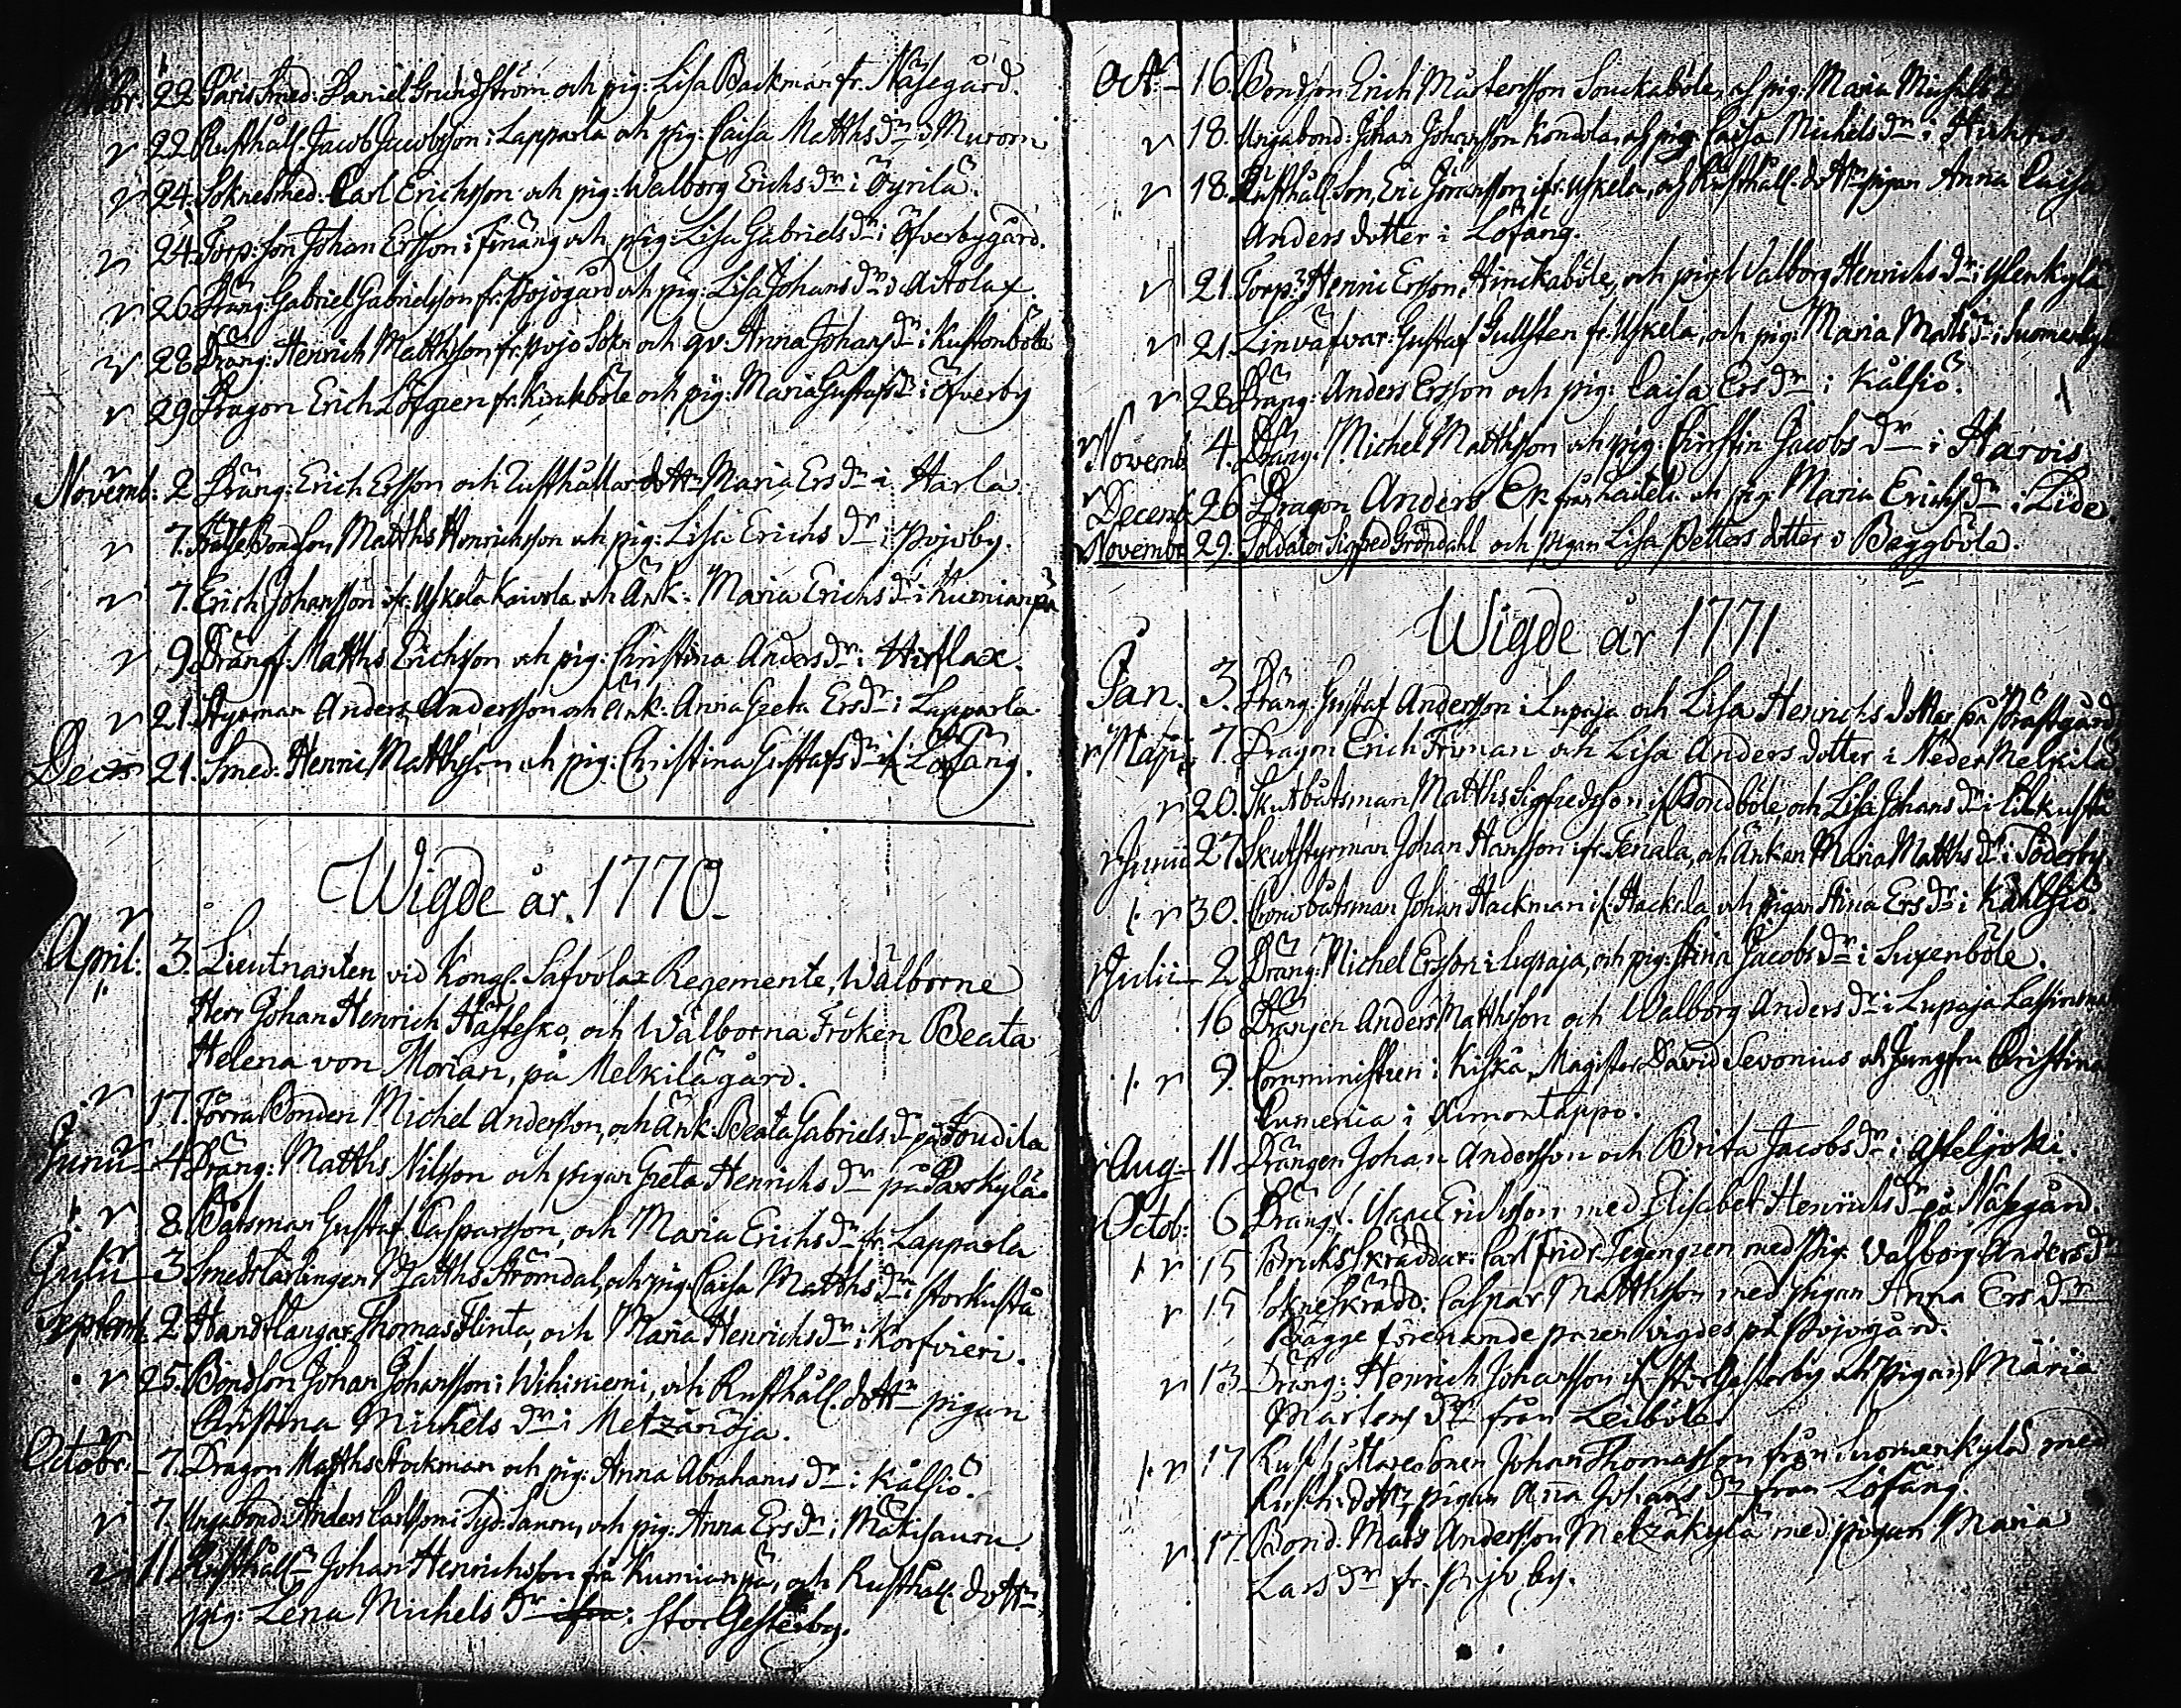 22. Smed: Daniel Grundström och pig: Lisa Backman fr. Näsegård.
22. Rusthåll. Jacob Jacobsson i Lapparla och pig: Caisa Matths dr i Murorn
24. Soknesmed: Carl Erichsson och pig: Walborg Erichs dr i Öyrilä.
24. Torp: son Johan Ersson i Finäng och pig: Lisa Gabriels dr i Öfverbygård.
26. Dräng: Gabriel Gabrielsson fr. Pojogård och pig: Lisa Johans dr i Antolax.
28. Dräng: Henrich Matthsson fr. Pojo Sokn och qv: Anna Johans dr i Kustonböle
29. Dragon Erich Löfgren fr. Kinkböle och pig: Maria Gustafs dr i Öfverby
Novemb: 2. Dräng: Erich Ersson och Rusthållar dottr Maria Ers dr i Harla.
7. Bondson Matths Henrichsson och pig: Lisa Erichs dr i Pojoby.
7. Erich Johansson ifr. Uskela Kaivola och Änk: Maria Erichs dr i Kumianpä
9. Dräng: Matths Erichsson och pig: Christina Anders dr i Hirflax.
21. Styrman Anders Andersson och Änk: Anna Greta Ers dr i Lapparla.
Decr 21. Smed: Henric Matthsson och pig: Christina Gustafs dr i Löfäng.
Wigde år. 1770.
April: 3. Lieutnanten vid Kongl. Safvolax Regemente, Wälborne
Herr Johan Henrich Hästesko, och Wälborna Fröken Beata
Helena von Morian, på Melkilägård.
17. Förra Bonden Michel Andersson, och Änk. Beata Gabriels dr på Joudila
Junii 4. Dräng: Matths Nilsson och pigan Greta Henrichs dr på Parkylä.
8. Båtsman Gustaf Casparsson, och Maria Erichs dr fr. Lapparla
Julii 3 Smedslärlingen Matths Strömdal, och pig. Caisa Matths dr i Storkustå
Septemb. 2. Handtlangar Thomas Flinta, och Maria Henrichs dr i Korfvieri.
25. Bondson Johan Johansson i Wihiniemi, och Rusthåll. dottr pigan
Christina Michels dr i Metzänöja.
Octobr. 7. Dragon Matths Stockman och pig: Anna Abrahams dr i Kålsiö.
7. Ungabond: Anders Carlsson i Syd: Sauru, och pig: Anna Ers dr i Mäkisauru
11 Rusthåll. Johan Henrichsson frå Kumianpä, och Rusthåll. dottr
pig: Lena Michels dr ifra: Stor Gesterby.
Oct. 16. Bondson Erich Mårtensson Souckaböle, och pig: Maria Michels
18. Ungabond: Johan Johansson Koncola, och pig: Caisa Michels dr i
18. Rusthåll. Son, Eric Göransson ifr. Uskela, och Rusthåll. dottr pigan Anna Caisa
Anders dotter i Löfäng.
21. Torp: Henric Ersson, Hinckaböle, och pig: Walborg Henrichs dr i Ylenkylä
21. Linväfvar: Gustaf Gullsten fr. Uskela, och pig: Maria Mats dr i Suomenkylä
28. Dräng: Anders Ersson och pig: Caisa Ers dr i Kålsiö.
Novemb. 4. Dräng. Michel Matthsson och pig: Christin Jacobs dr i Harvis
Decemb. 26 Dragon Anders Ek från och pig: Maria Erichs dr i Lide.
Novembr 29. Soldaten Sigfred Gröndahl och pigan Lisa Petters dotter i Baggböle.
Wigde år 1771.
Jan. 3. Dräng. Gustaf Andersson i Lupaja och Lisa Henrichs dotter på Prästgård
Maji 7. Dragon Erich Friman och Lisa Anders dotter i Neder Melkilä.
20. Skutbåtsman Matths Sigfredsson if. Bondböle, och Lisa Johans dr i Lilkustå
Junii 27 Skutstyrman Johan Hansson ifr. Tenala, och Änkan Maria Matths dr i Söderby.
30. Cronobåtsman Johan Hackman if. Hackila och pigan Stina Ers dr i Kåhlsiö.
Julii 2. Dräng: Michel Ersson i Lupaja, och pig: Stina Jacobs dr i Suxenböle.
16 Drängen Anders Matthsson och Walborg Anders dr i Lupaja
9. Comministren i Kiskå, Magister David Sevonius och Jungfru Christina
Cumenia i Aimontappo.
Aug. 11. Drängen Johan Andersson och Brita Jacobs dr i Asteljoki.
Octob: 6 Dräng. Isaac Erichsson med Elisabet Henrichs dr på Näsgård.
15 Bruks Skräddar: Carl Fridr. Tegengren med Pig: Valborg Anders dr
15 Sokneskrädd: Caspar Matthsson med pigan Anna Ers dr
Bägge förenämde paren vigdes på Pojogård.
13 Dräng: Henrich Johansson if. Stor Gesterby och Pigan Maria
Mårtens dr från Leiböle.
17 Rusthållaresonen Johan Thomasson från Suomenkylä med
Rusth: dottr, pigan Anna Johans dr från Löfäng.
17. Bond: Mats Andersson Metzäkylä med pigan Maria
Lars dr fr. Pojo by.